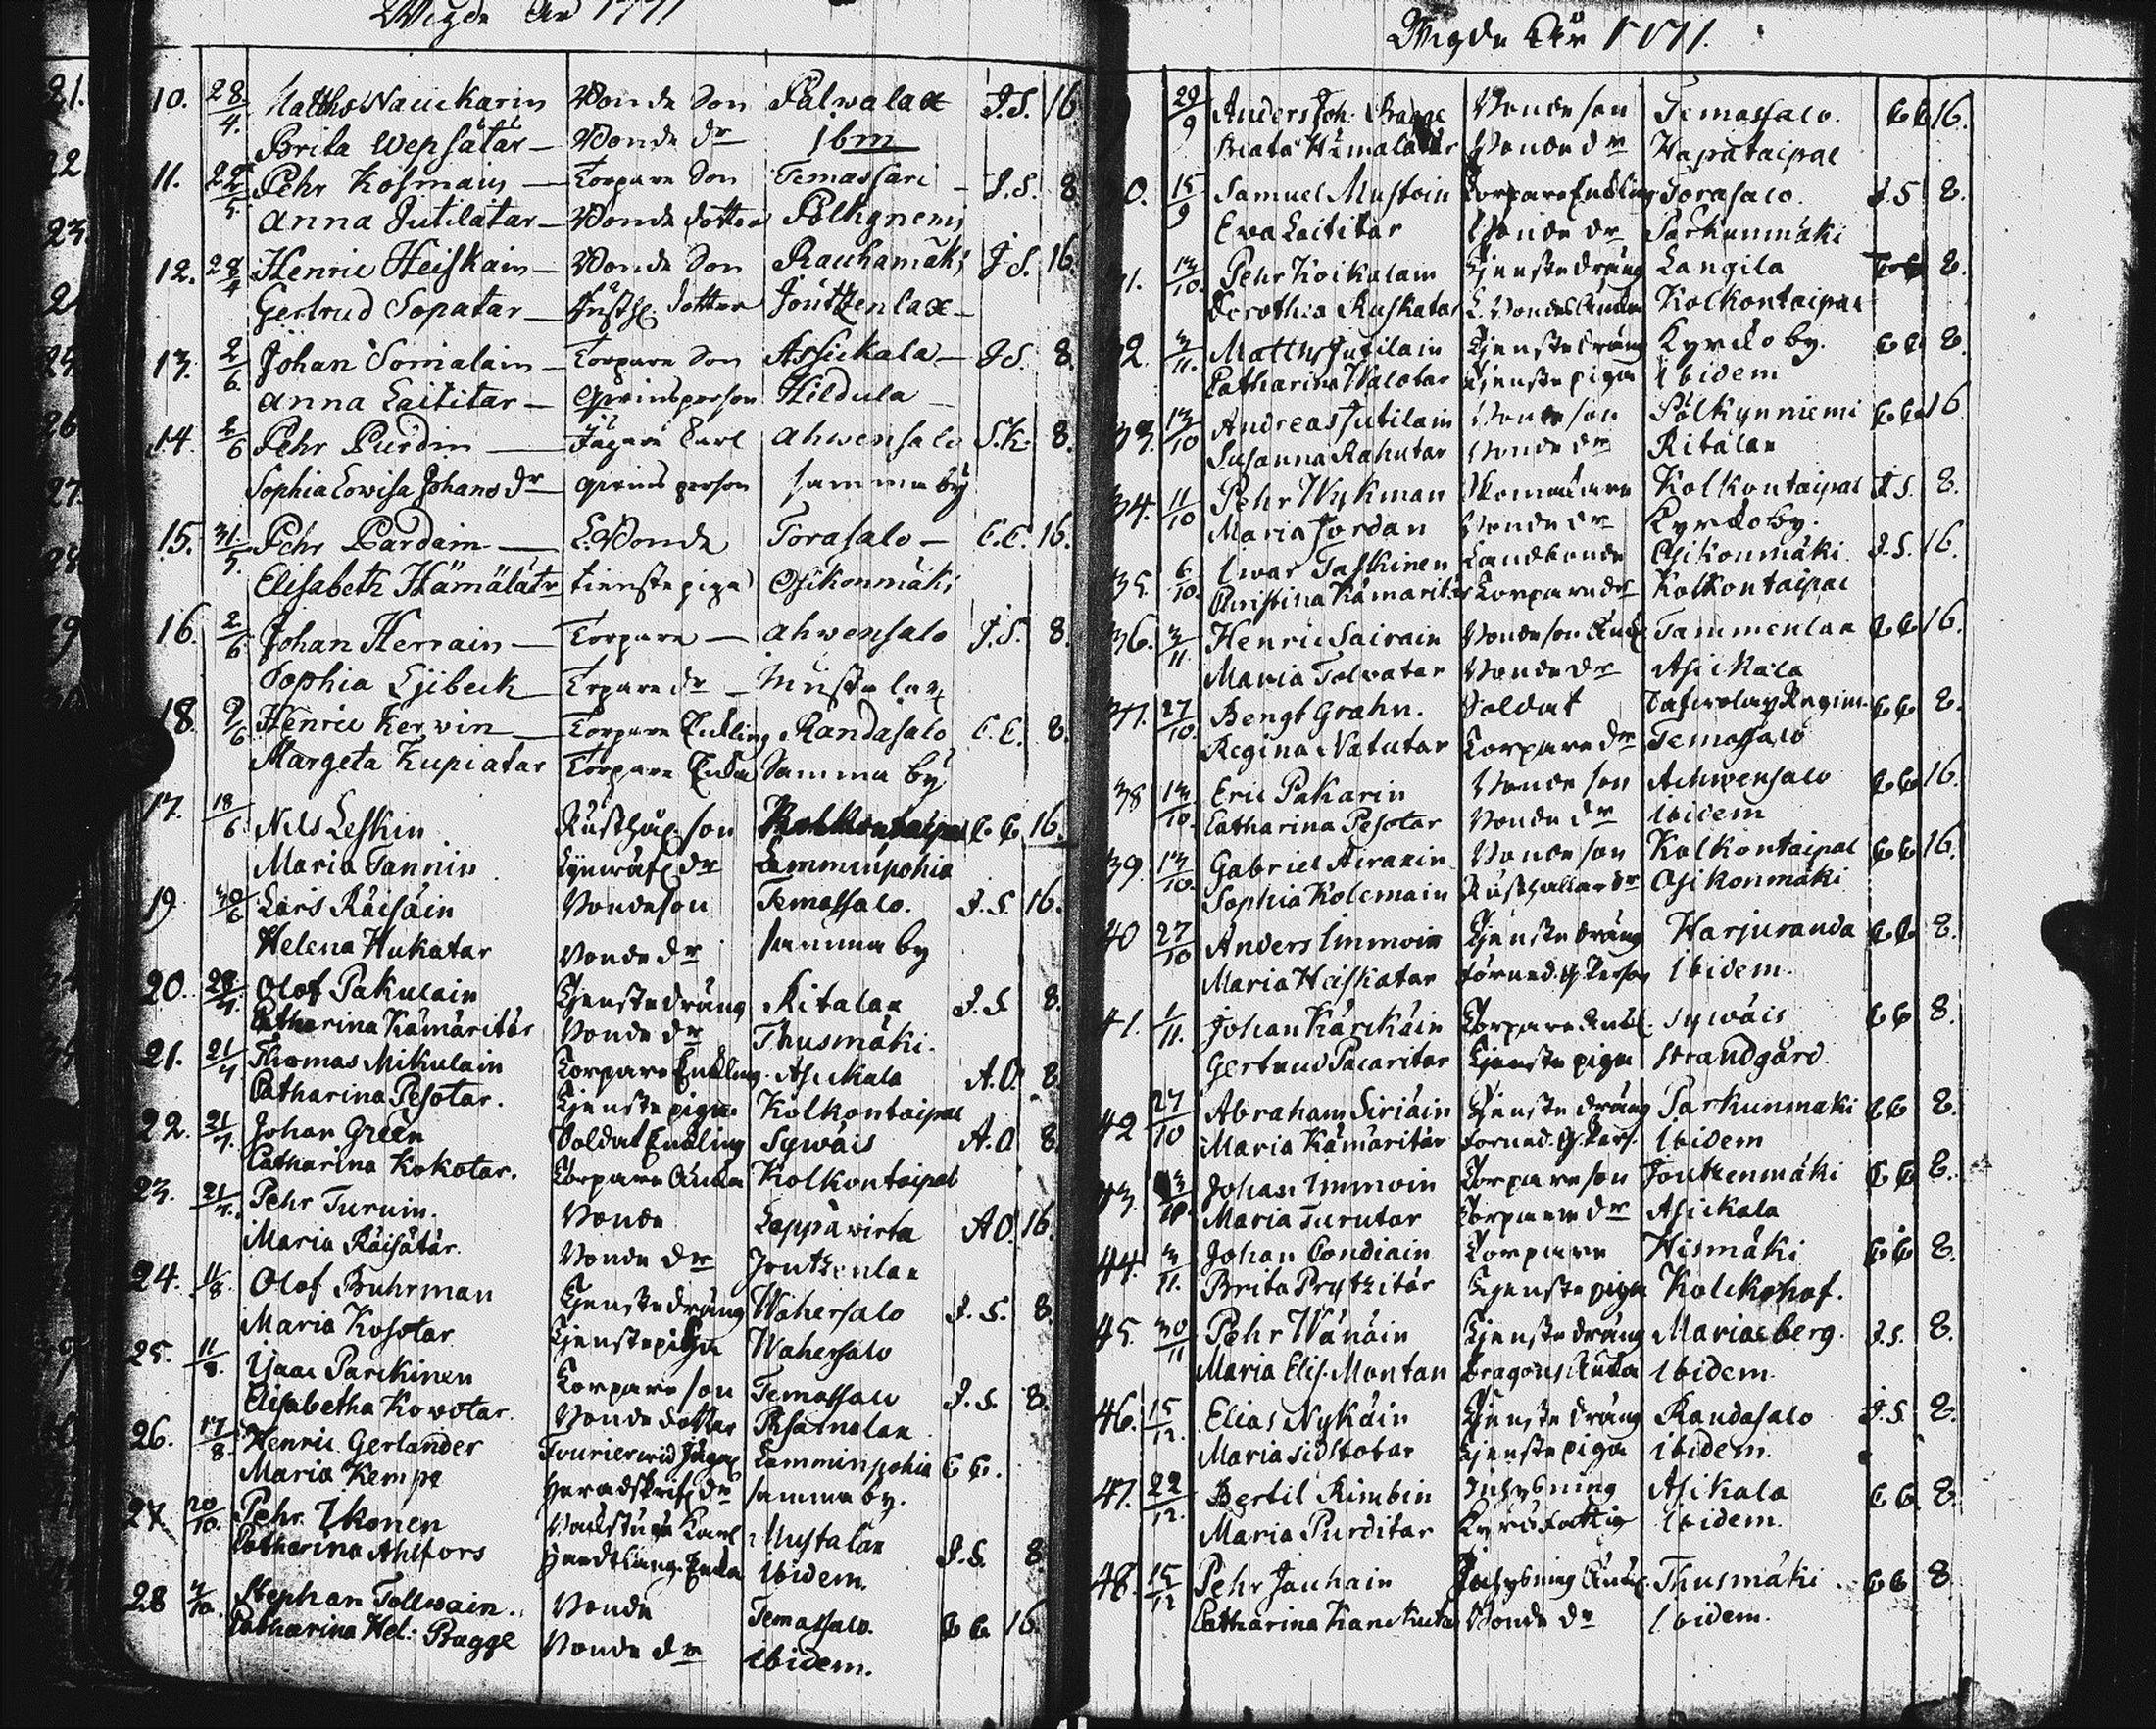 Wigde År 1771
10. 28/4. Matths Nauckarin Bonde Son Palwalax J.S. 16.
Brita Wepsätär Bonde dr ibm
11. 22/5. Pehr Kosmain Torpare Son Temassari J.S. 8.
Anna Jutilatar Bonde dotter Pölkynemi
12. 28/4 Henric Heiskain Bonde Son Rauhamäki J.S. 16.
Gertrud Sopatar dotter Joutzenlax
13. 2/6. Johan Somalain Torpare Son Assickala J.S. 8.
Anna Laititar Qwinsperson Hildula
14. 2/6 Pehr Purdin Jägare Carl Ahwensalo S.K. 8.
Sophia Lowisa Johans dr qwins person samma by
15. 31/5. Pehr Pardain L. Bonde Torasalo C.C. 16.
Elisabeth Hämälätr tienste piga Osikonmäki
16. 2/6 Johan Herrain Torpare Ahwensalo J.S. 8.
Sophia Sjöbeck Torpare dr Mustalax
18. 9/6 Henric Kerwin Torpare Enkling Randasalo C.C. 8.
Margeta Kupiatar Torpare Enka Samma by
17. 18/6 Nils Leskin Rusthål. son Kolkontaipal C C 16.
Maria Tannin dr Lamminpohia
19 30/6 Lars Räisäin Bondeson Temassalo. J.S. 16.
Helena Hukatar Bonde dr samma by
20. 28/4. Olof Pakulain Tjenstedräng Kitalax J.S 8.
Catharina Kämäritär Bonde dr Thusmäki.
21. 21/4 Thomas Mikulain Torpare Enkling. Asickala A.O. 8.
Catharina Pesotar. Tjenstepiga. Kolkontaipal
22. 21/7. Johan Green Soldat Enkling Sywäis A.O 8.
Catharina Kokotar. Torpare Enka Kolkontaipal
23. 21/7. Pehr Turuin. Bonde Leppäwirta A O. 16.
Maria Räisätär. Bonde dr Joutzenlax
24. 11/8 Olof Buhrman Tjenstedräng Wahersalo J.S. 8.
Maria Kosotar Tjenstepiga Wahersalo
25. 11/8. Isaac Parckinen Torpare son Temassalo J.S. 8.
Elisabetha Kowotar. Bonde dotter
26. 17/8. Henric Gerlander Fourier wid Jägar Lamminpohia C C.
Maria Kempe Häradskrif. dr samma by.
27. 20/10. Pehr Ikonen Karl Mustalax J.S. 8
Catharina Ahlfors Enka Ibidem.
28 /10. Stephan Tollwain. Bonde Temassalo. C C. 16.
Catharina Hel: Bagge Bonde dr Ibidem.
Wigde År 1771.
29/9 Anders Joh: Bagge Bondeson Temassalo. C C 16.
Beata Hämalatar Bonde dr Hapataipal
30. 15/9 Samuel Mustoin Torpare Enkling Torasalo. J.S 8.
Ewa Laititar Bonde dr Parkunmäki
31. 13/10. Pehr Koikalain Tjenstedräng Langila 8.
Dorothea Ruskatar L. Bondes Enka Kolkontaipal
32. 3/11. Matths Jutilain Tjenstedräng Kyrckoby. C C. 8.
Catharina Walotar Tjenstepiga Ibidem
33. 13/10 Andreas Jutilain Bonde son Pölkynniemi C C 16
Susanna Rahutar Bonde dr Kitälax
34. 11/10 Pehr Wykman Skomakare Kolkontaipal J.S. 8.
Maria Jordan Bonde dr Kyrckoby.
35. 6/10. Iwar Taskinen Landbonde Osikonmäki. J.S. 16.
Christina Kämäritär Torpare dr Kolkontaipal
36. 3/11 Henric Sairain Bondeson Enkl. Tammenlax C C 16.
Maria Tolvatar Bonde dr Asickala
37. 27/10. Bengt Grahn. Soldat Regim. C C 8.
Regina Natutar Torpare dr Temassalo
38 13/10. Eric Pakarin Bonde son Achwensalo C C 16.
Catharina Pesotar Bonde dr Ibidem
39. 13/10. Gabriel Bonde son Kolkontaipal C C 16.
Sophia Kolemain Rusthållare dr Osikonmäki
40 27/10 Anders Immoin Tjenstedräng Harjuranda C C 8.
Maria Heiskatar förned. Q. Person Ibidem.
41. 1/11. Johan Kärckäin Torpare Enkl. Sywäis C C 8.
Gertrud Pacaritar Tjenstepiga Strandgård.
42 27/10 Abraham Siriäin Tjenstedräng Parkunmaki C C 8.
Maria Kämäritär förned. Q. Pers. Ibidem
43. 13/10. Johan Immoin Torpareson Joutzenmäki C C 8.
Maria Turutar Torpare dr Asickala
44. 3/11. Johan Condiain Torpare Hismäki C C 8.
Brita Prytzitär Tjenstepiga Kolckohof.
45. 30/11 Pehr Wänäin Tjenstedräng Mariaeberg. J.S. 8.
Maria Elis. Montan Dragons Enka Ibidem.
46. 15/12. Elias Nykäin Tjenstedräng Randasalo J.S. 8.
Maria Sidstotar Tjenstepiga Ibidem.
47. 22/12. Bertil Rimbin Inhysning Asikala C C. 8.
Maria Purditar Kyrkofattig Ibidem.
48. 15/12 Pehr Jauhain Inhysning Enkl. Thusmäki. C C 8
Catharina Kanckuta Bonde dr Ibidem.